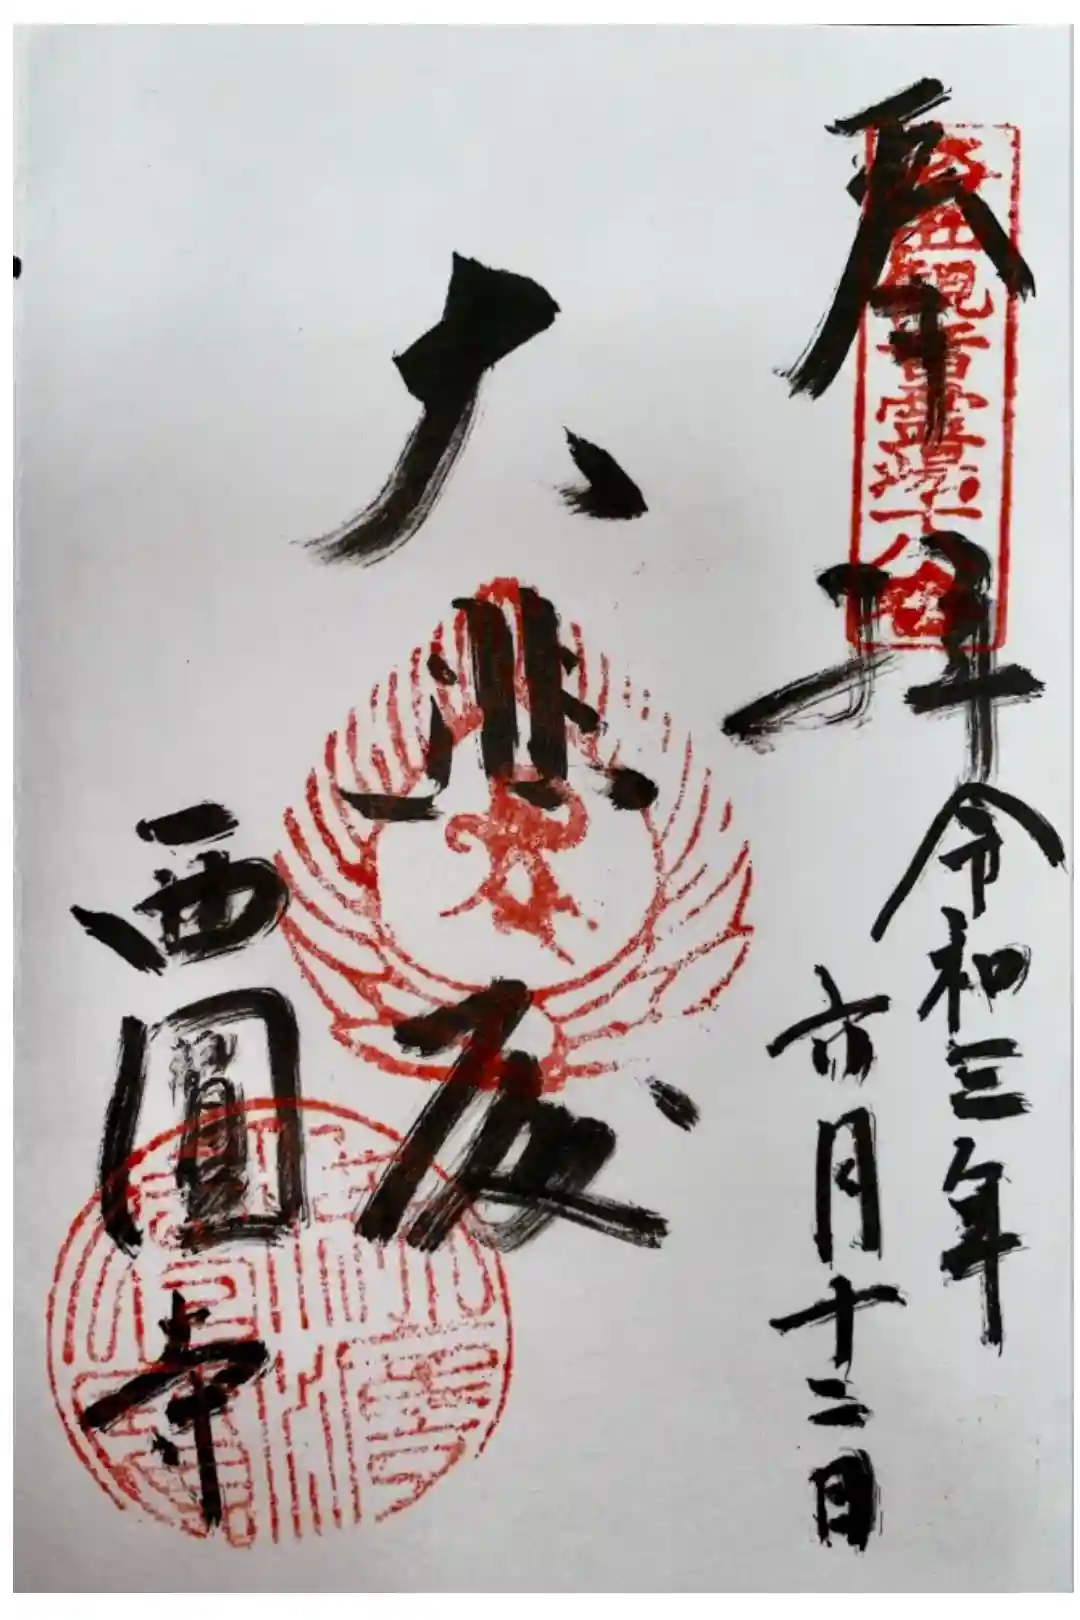 奉拝
観音霊場十八番
令和三年
六月十二日
大悲殿
西圓寺